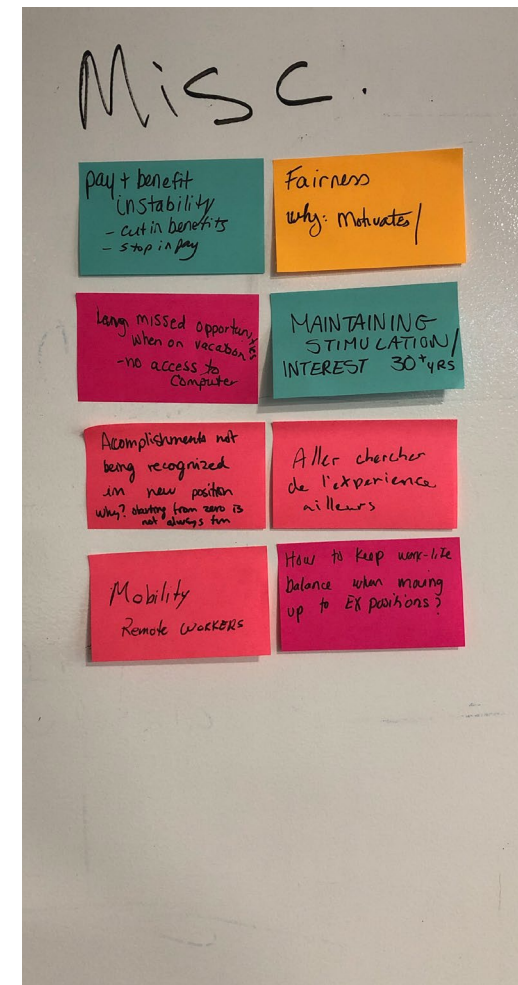 Misc.
pay + benefit
instability
- cut in benefits
- stop in pay
Fairness
why: Motivates/
missed opportunities
when on vacation
- no access to
computer
MAINTAINING
STIMULATION/
INTEREST 30+ YRS
Accomplishments not
being recognized
in new position
why? starting from zero is
not always fun
Aller chercher
de l'experience
ailleurs
Mobility
Remote WORKERS
How to keep work-life
balance when moving
up to EX positions?